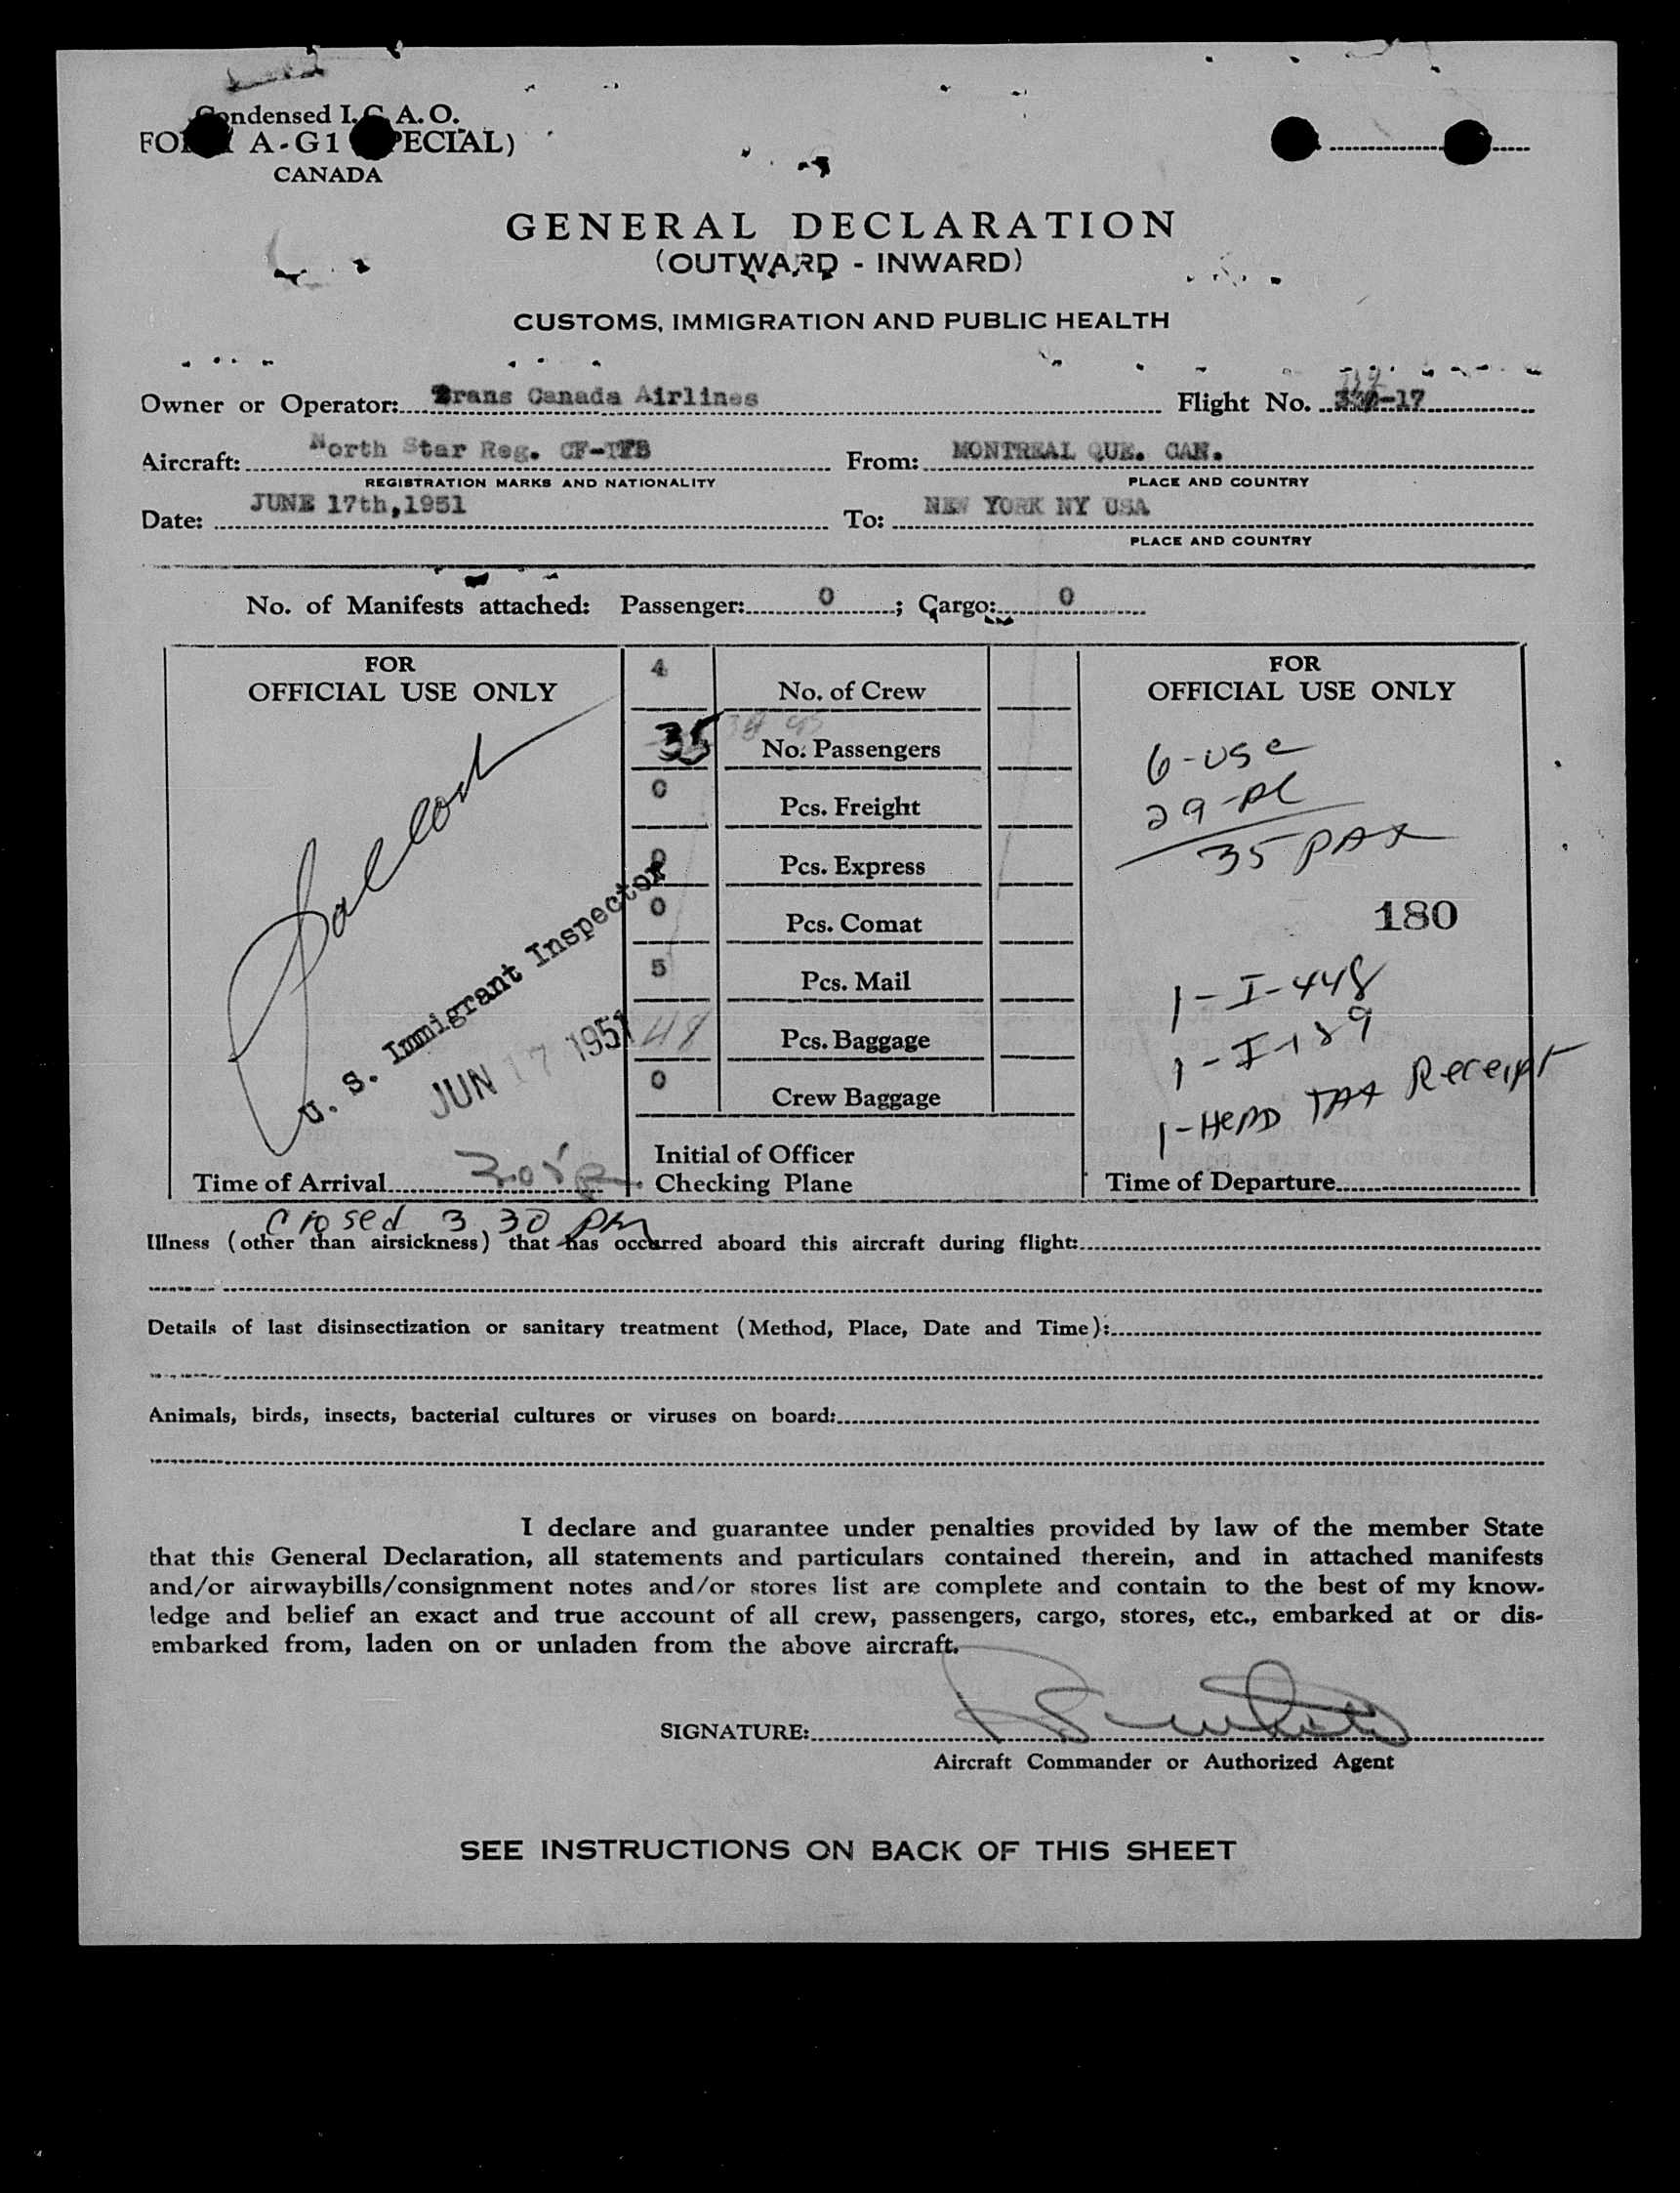 Condensed I.C.A.O.
FORM A-G1 (SPECIAL)
CANADA
GENERAL DECLARATION
(OUTWARD - INWARD)
CUSTOMS, IMMIGRATION AND PUBLIC HEALTH
Owner or Operator: Trans Canada Airlines Flight No. -17
Aircraft: North Star Reg. CF-TFB From: MONTREAL QUE. CAN.
REGISTRATION MARKS AND NATIONALITY PLACE AND COUNTRY
Date: JUNE 17th,1951 To: NEW YORK NY USA
PLACE AND COUNTRY
No. of Manifests attached: Passenger: 0 ; Cargo: 0
FOR
OFFICIAL USE ONLY
U. S. Immigrant Inspector
JUN 17 1951
Time of Arrival
Closed 3 30 PM
4 No. of Crew
35 No. Passengers
0 Pcs. Freight
0 Pcs. Express
0 Pcs. Comat
5 Pcs. Mail
48 Pcs. Baggage
0 Crew Baggage
Initial of Officer
Checking Plane
FOR
OFFICIAL USE ONLY
6-USC
29-AL
35 PAX
180
1-I-448
1-I-189
1-HEAD TAX Receipt
Time of Departure
Illness (other than airsickness) that has occurred aboard this aircraft during flight:
Details of last disinsectization or sanitary treatment (Method, Place, Date and Time):
Animals, birds, insects, bacterial cultures or viruses on board:
I declare and guarantee under penalties provided by law of the member State
that this General Declaration, all statements and particulars contained therein, and in attached manifests
and/or airwaybills/consignment notes and/or stores list are complete and contain to the best of my know-
ledge and belief an exact and true account of all crew, passengers, cargo, stores, etc., embarked at or dis-
embarked from, laden on or unladen from the above aircraft.
SIGNATURE:
Aircraft Commander or Authorized Agent
SEE INSTRUCTIONS ON BACK OF THIS SHEET